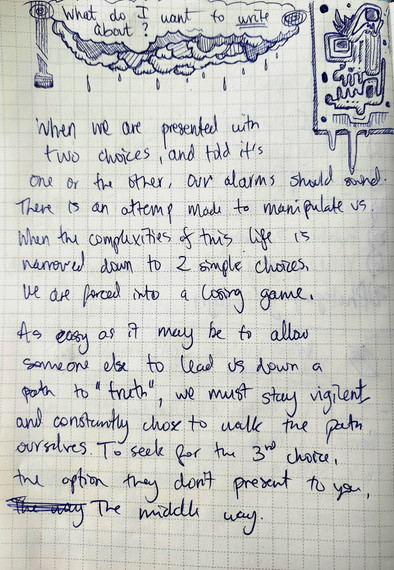 What do I want to write
about?
When we are presented with
two choices, and told it's
one or the other, our alarms should sound.
There is an attemp made to manipulate us.
When the complexities of this life is
narrowed down to 2 simple choices.
We are forced into a losing game.
As easy as it may be to allow
someone else to lead us down a
path to "truth", we must stay vigilent
and constantly chose to walk the path
ourselves. To seek for the 3rd choice,
the option they don't present to you,
the way The middle way.